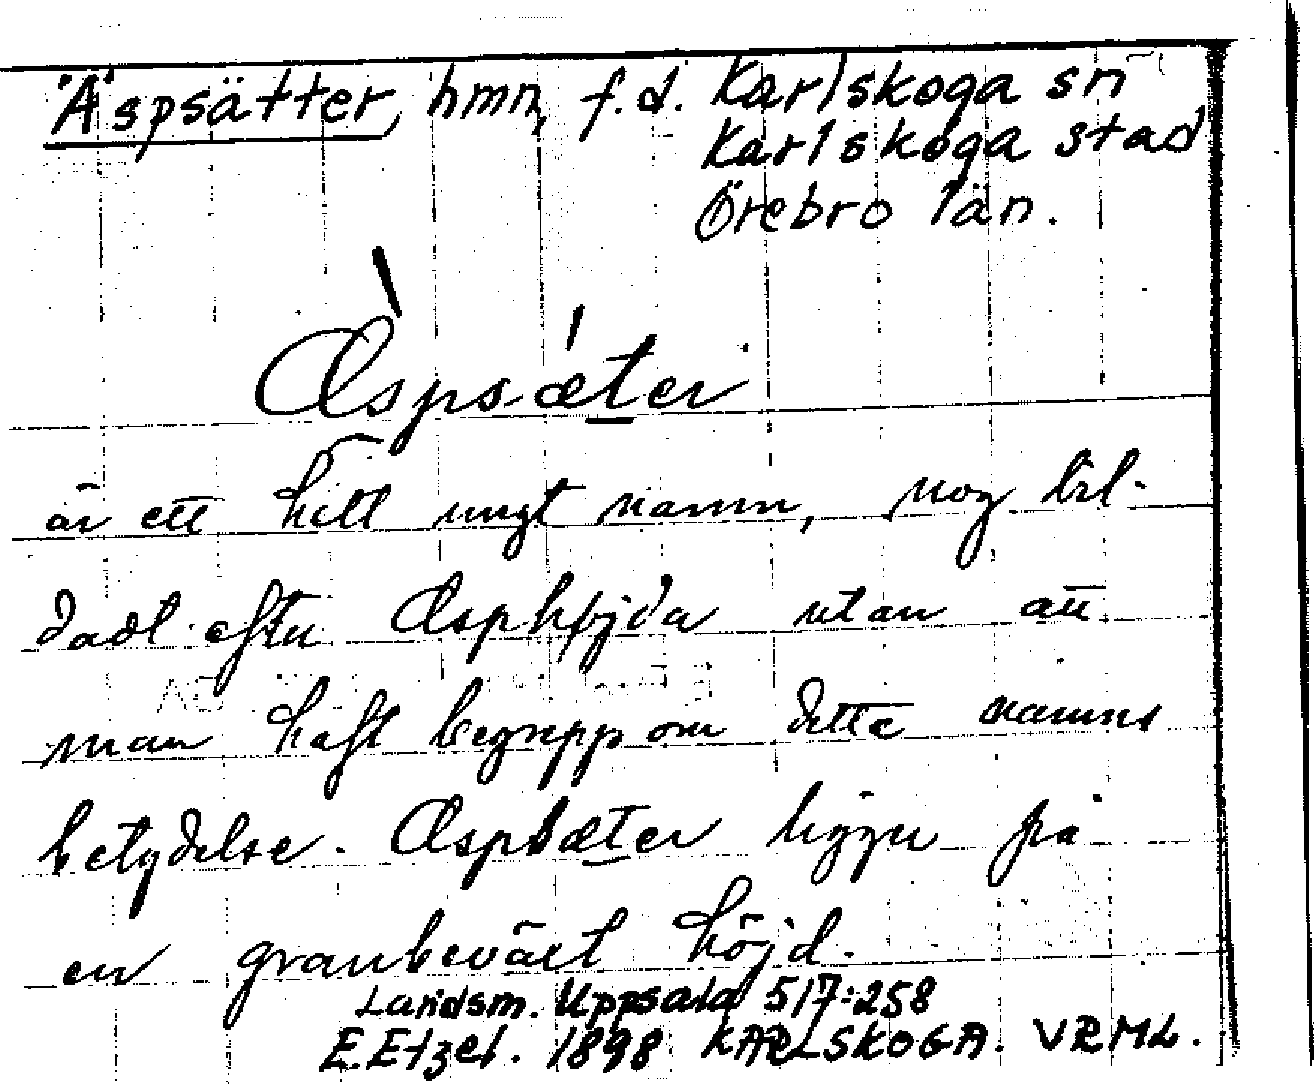 "Äspsätter, hmn, f.d. Karlskoga sn
Karlskoga stad
Örebro län.
Æspsæter
är ett helt ungt namn, nog bil-
dadt efter Æsphöjda utan att
man haft begrepp om detta namns
betydelse. Æspsæter ligger på
en granbeväxt höjd.
Landsm. Uppsala 517:258
E. Etzel. 1898 KARLSKOGA. VRML.